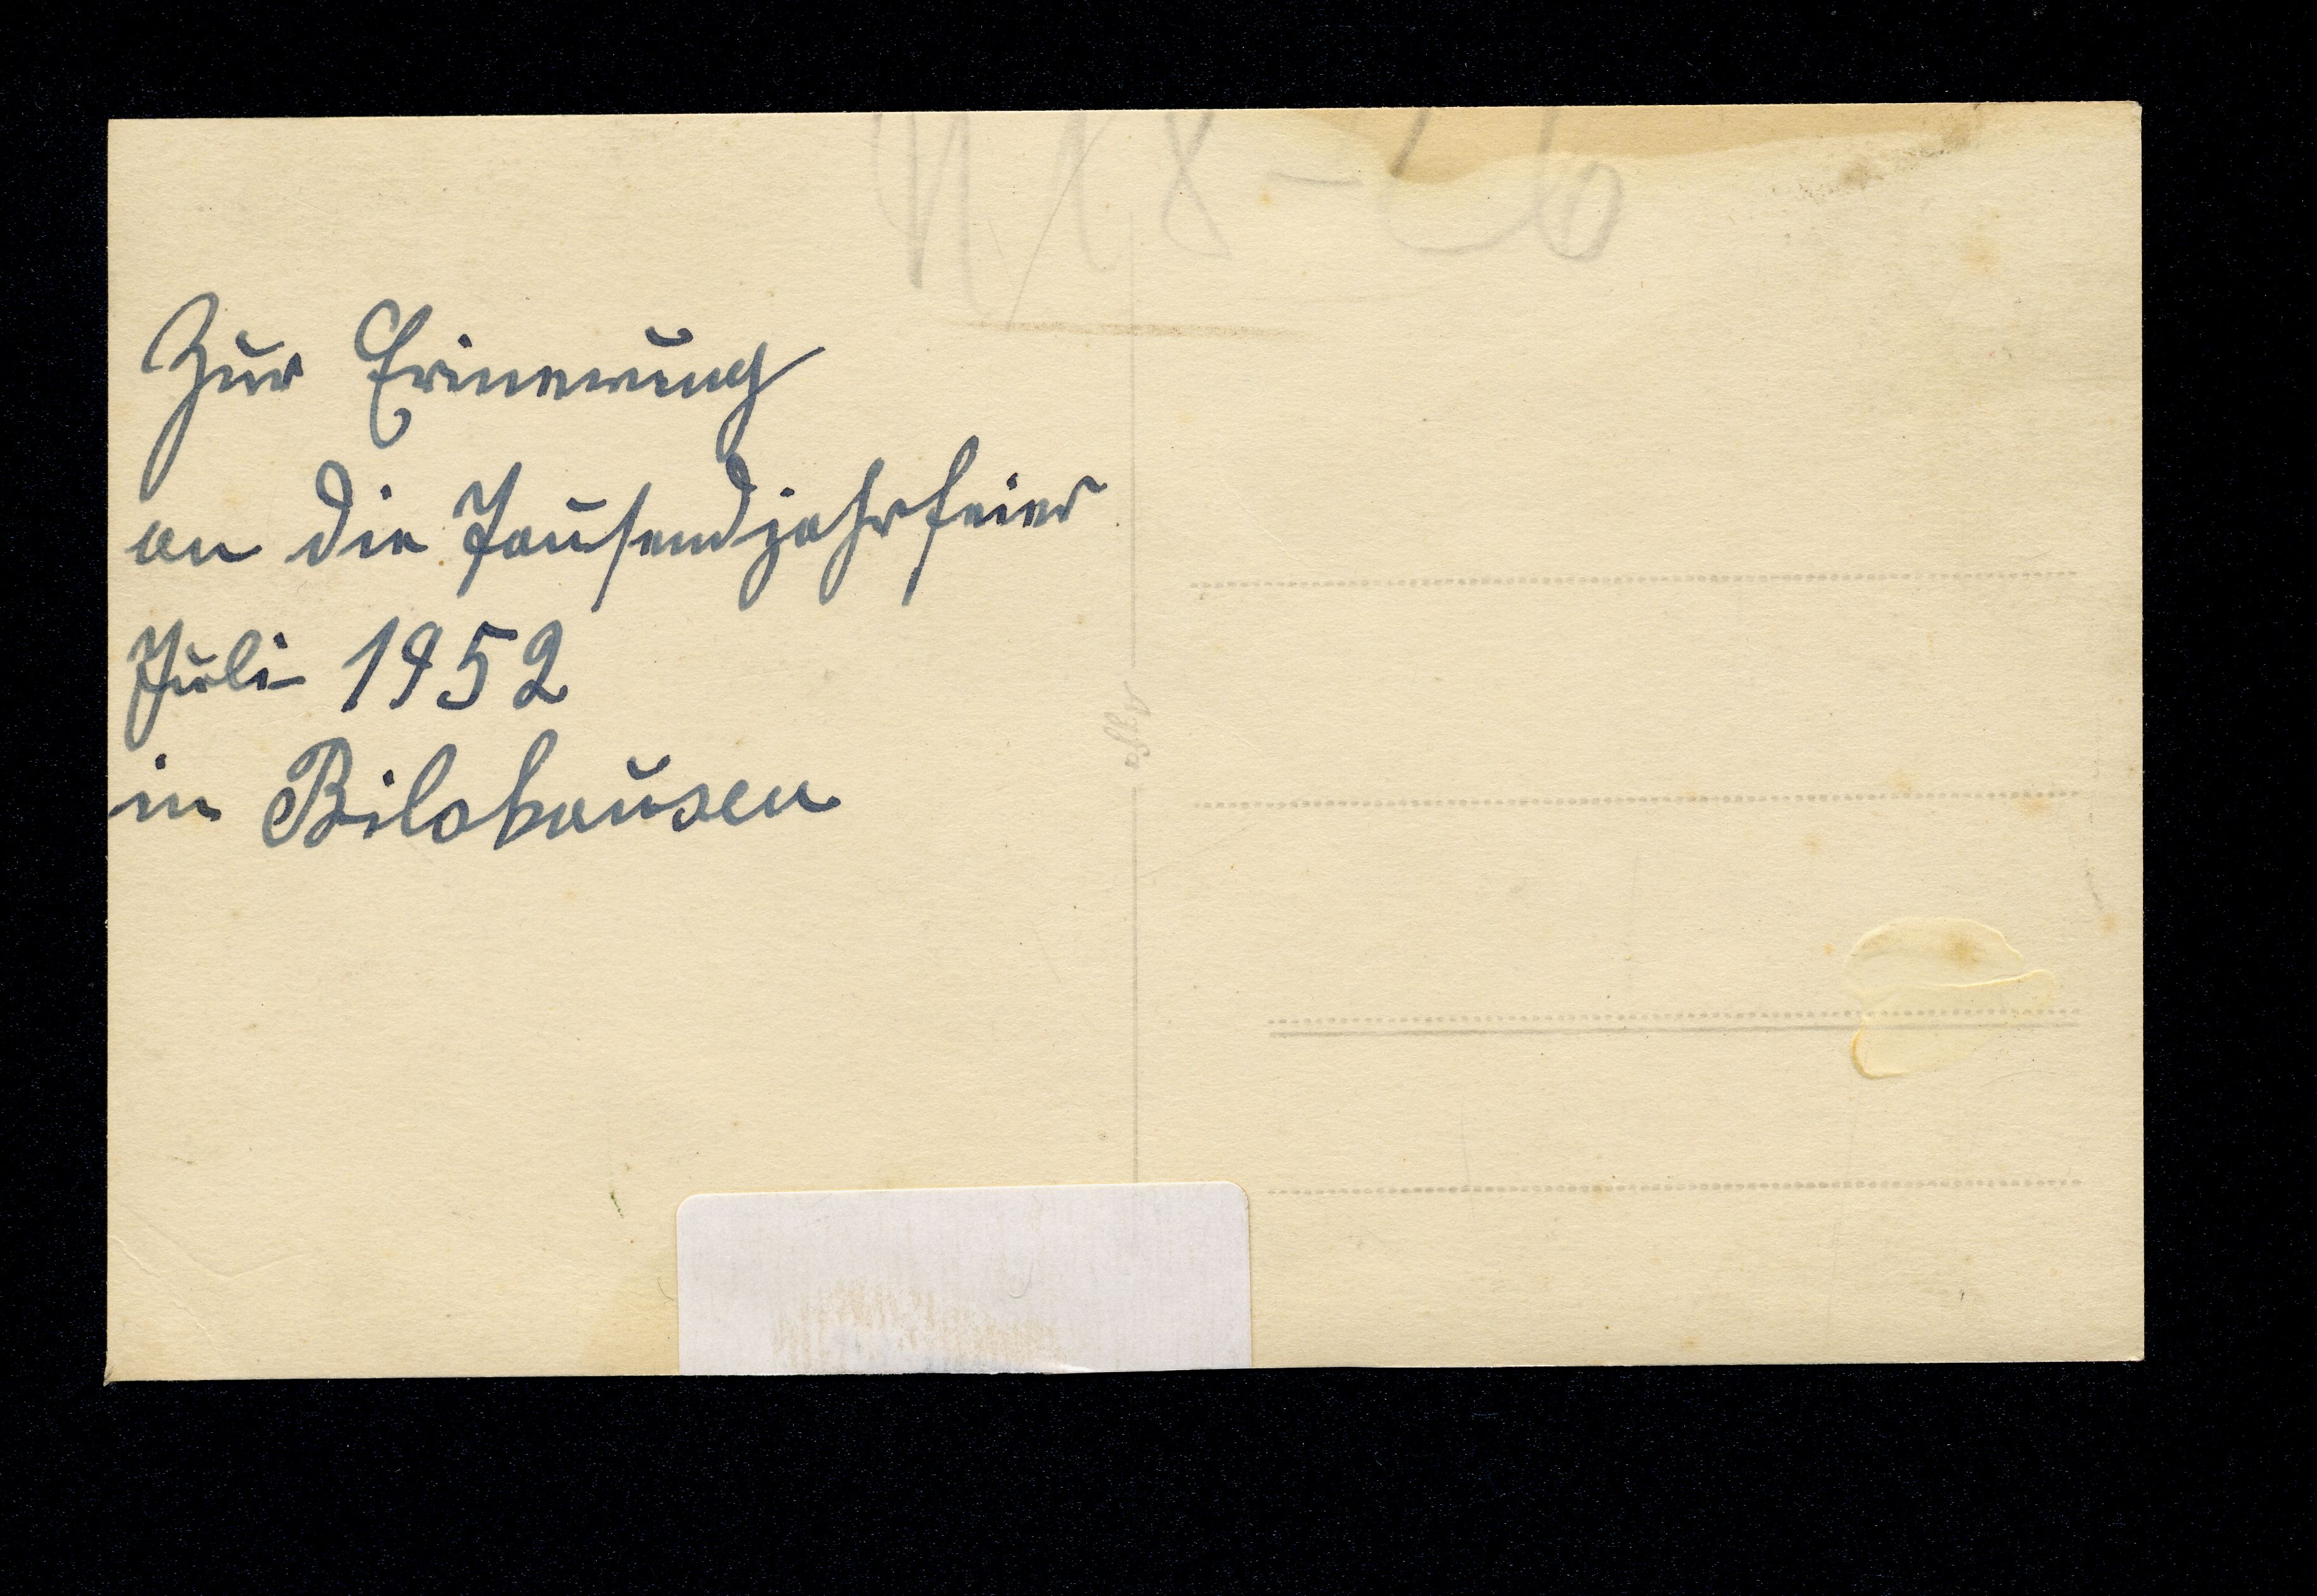 Zur Erinerung
an die Tausendjahrfeier
Juli 1952
in Bilshausen